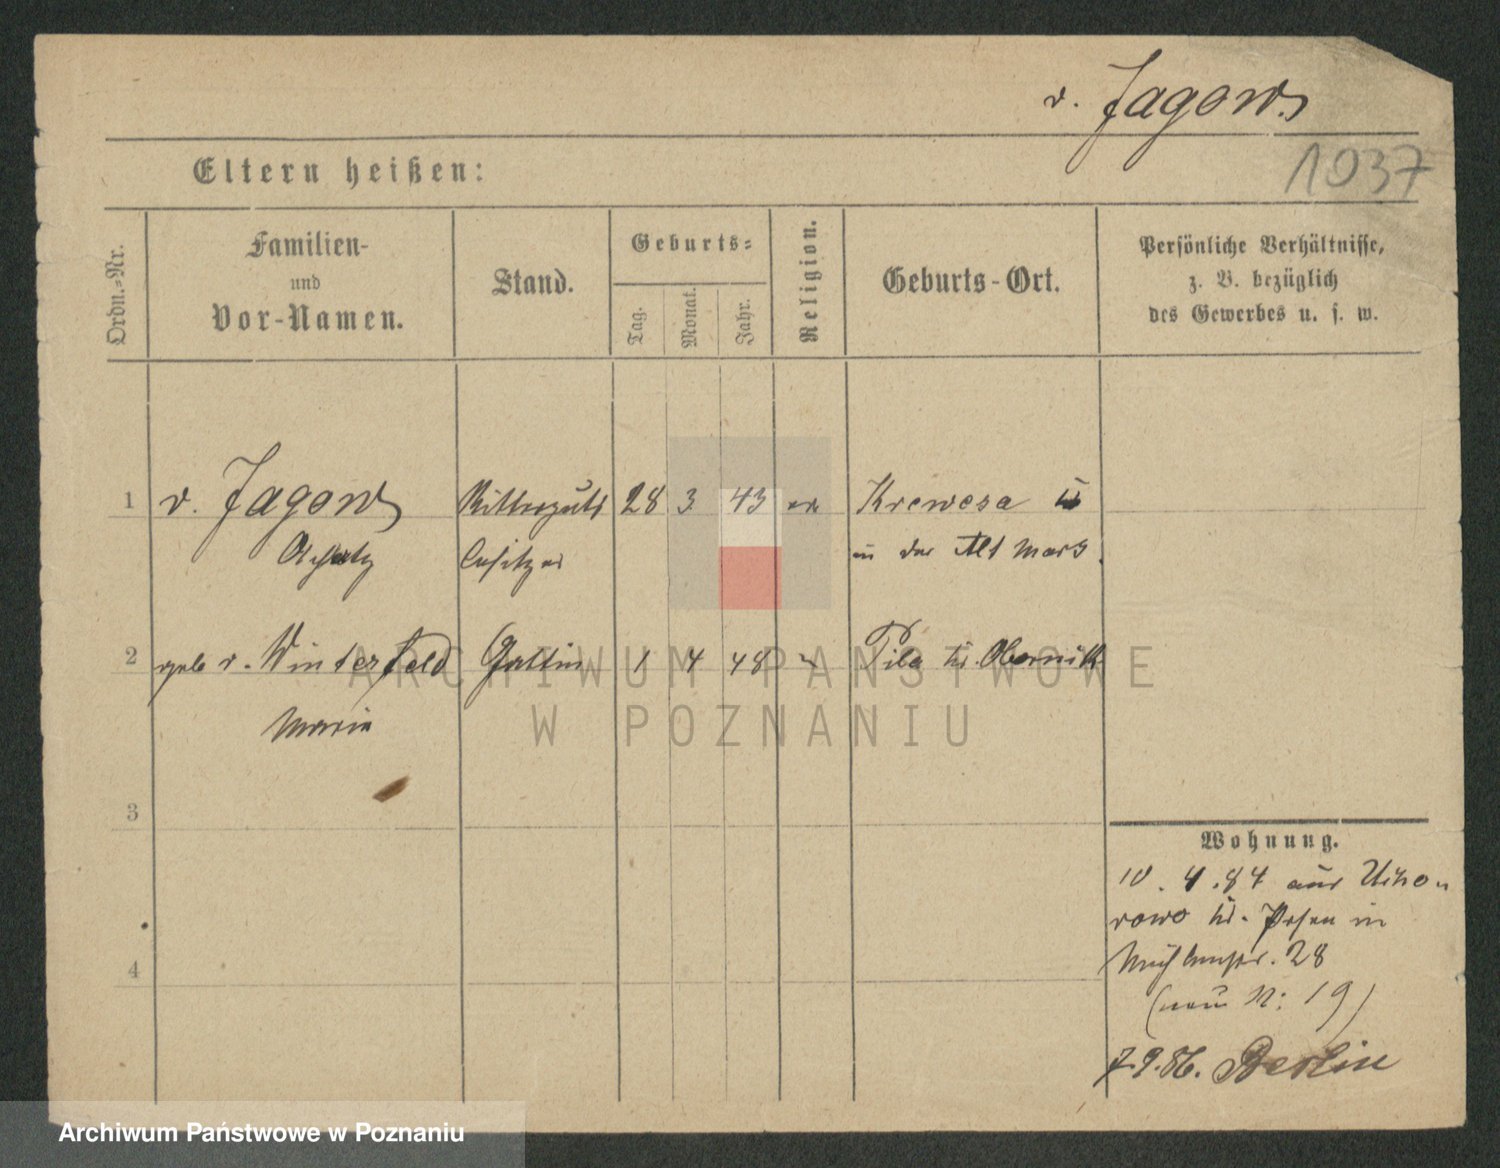 v. Jagow.
1037
Eltern heißen:
Ordn.-Nr.
Familien-
und
Vor-Namen.
Stand.
Geburts-
Tag.
Monat.
Jahr.
Religion.
Geburts-Ort.
Persönliche Verhältnisse,
z. B. bezüglich
des Gewerbes u. s. w.
1 v. Jagow Ritterguts 28 3 43 ev Krewesa
besitzer in der Alt Mark
2 geb v. Winterfeld Gattin 1 4 48 Pila Kr. Obornik
Maria
3
4
Wohnung.
10. 4. 84 aus Ucho-
rowo Kr. Posen in
Mühlenstr. 28
(neu N: 19)
7.9.86. Berlin
ARCHIWUM PAŃSTWOWE
W POZNANIU
Archiwum Państwowe w Poznaniu